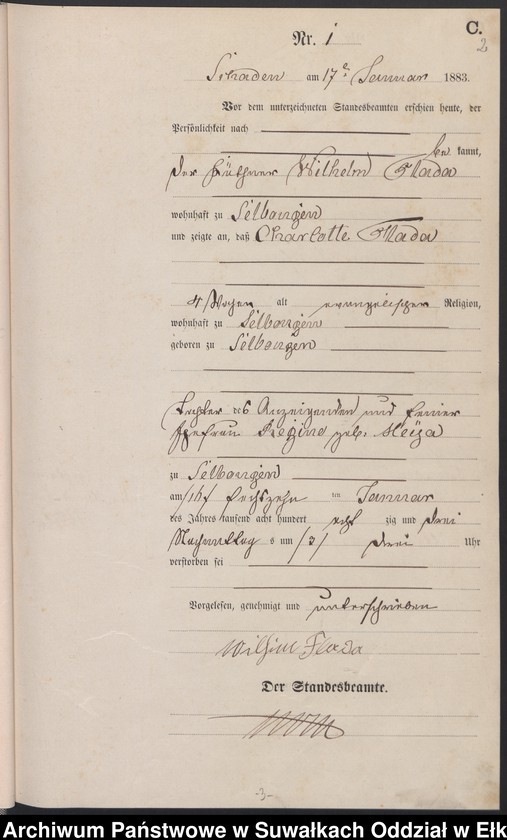 C.
2
Nr. 1
Schaden am 17 e Januar 1883.
Vor dem unterzeichneten Standesbeamten erschien heute, der
Persönlichkeit nach
be kannt,
der Wilhelm Flada
wohnhaft zu Selbongen
und zeigte an, daß Charlotte Flada
4 Wochen alt evangelischer Religion,
wohnhaft zu Selbongen
geboren zu Selbongen
Tochter des Anzeigenden und seiner
Ehefrau Regine geb.
zu Selbongen
am /16/ sechszehn ten Januar
des Jahres tausend acht hundert acht zig und drei
Nachmittag s um /3/ drei Uhr
verstorben sei
Vorgelesen, genehmigt und unterschrieben
Wilhelm Flada
Der Standesbeamte.
-3-
Archiwum Państwowe w Suwałkach Oddział w Ełk